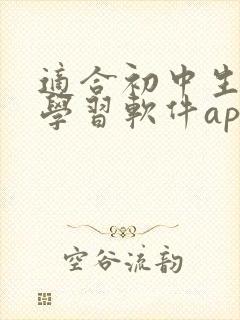 適合初中生
學習軟件ap
空谷流韵